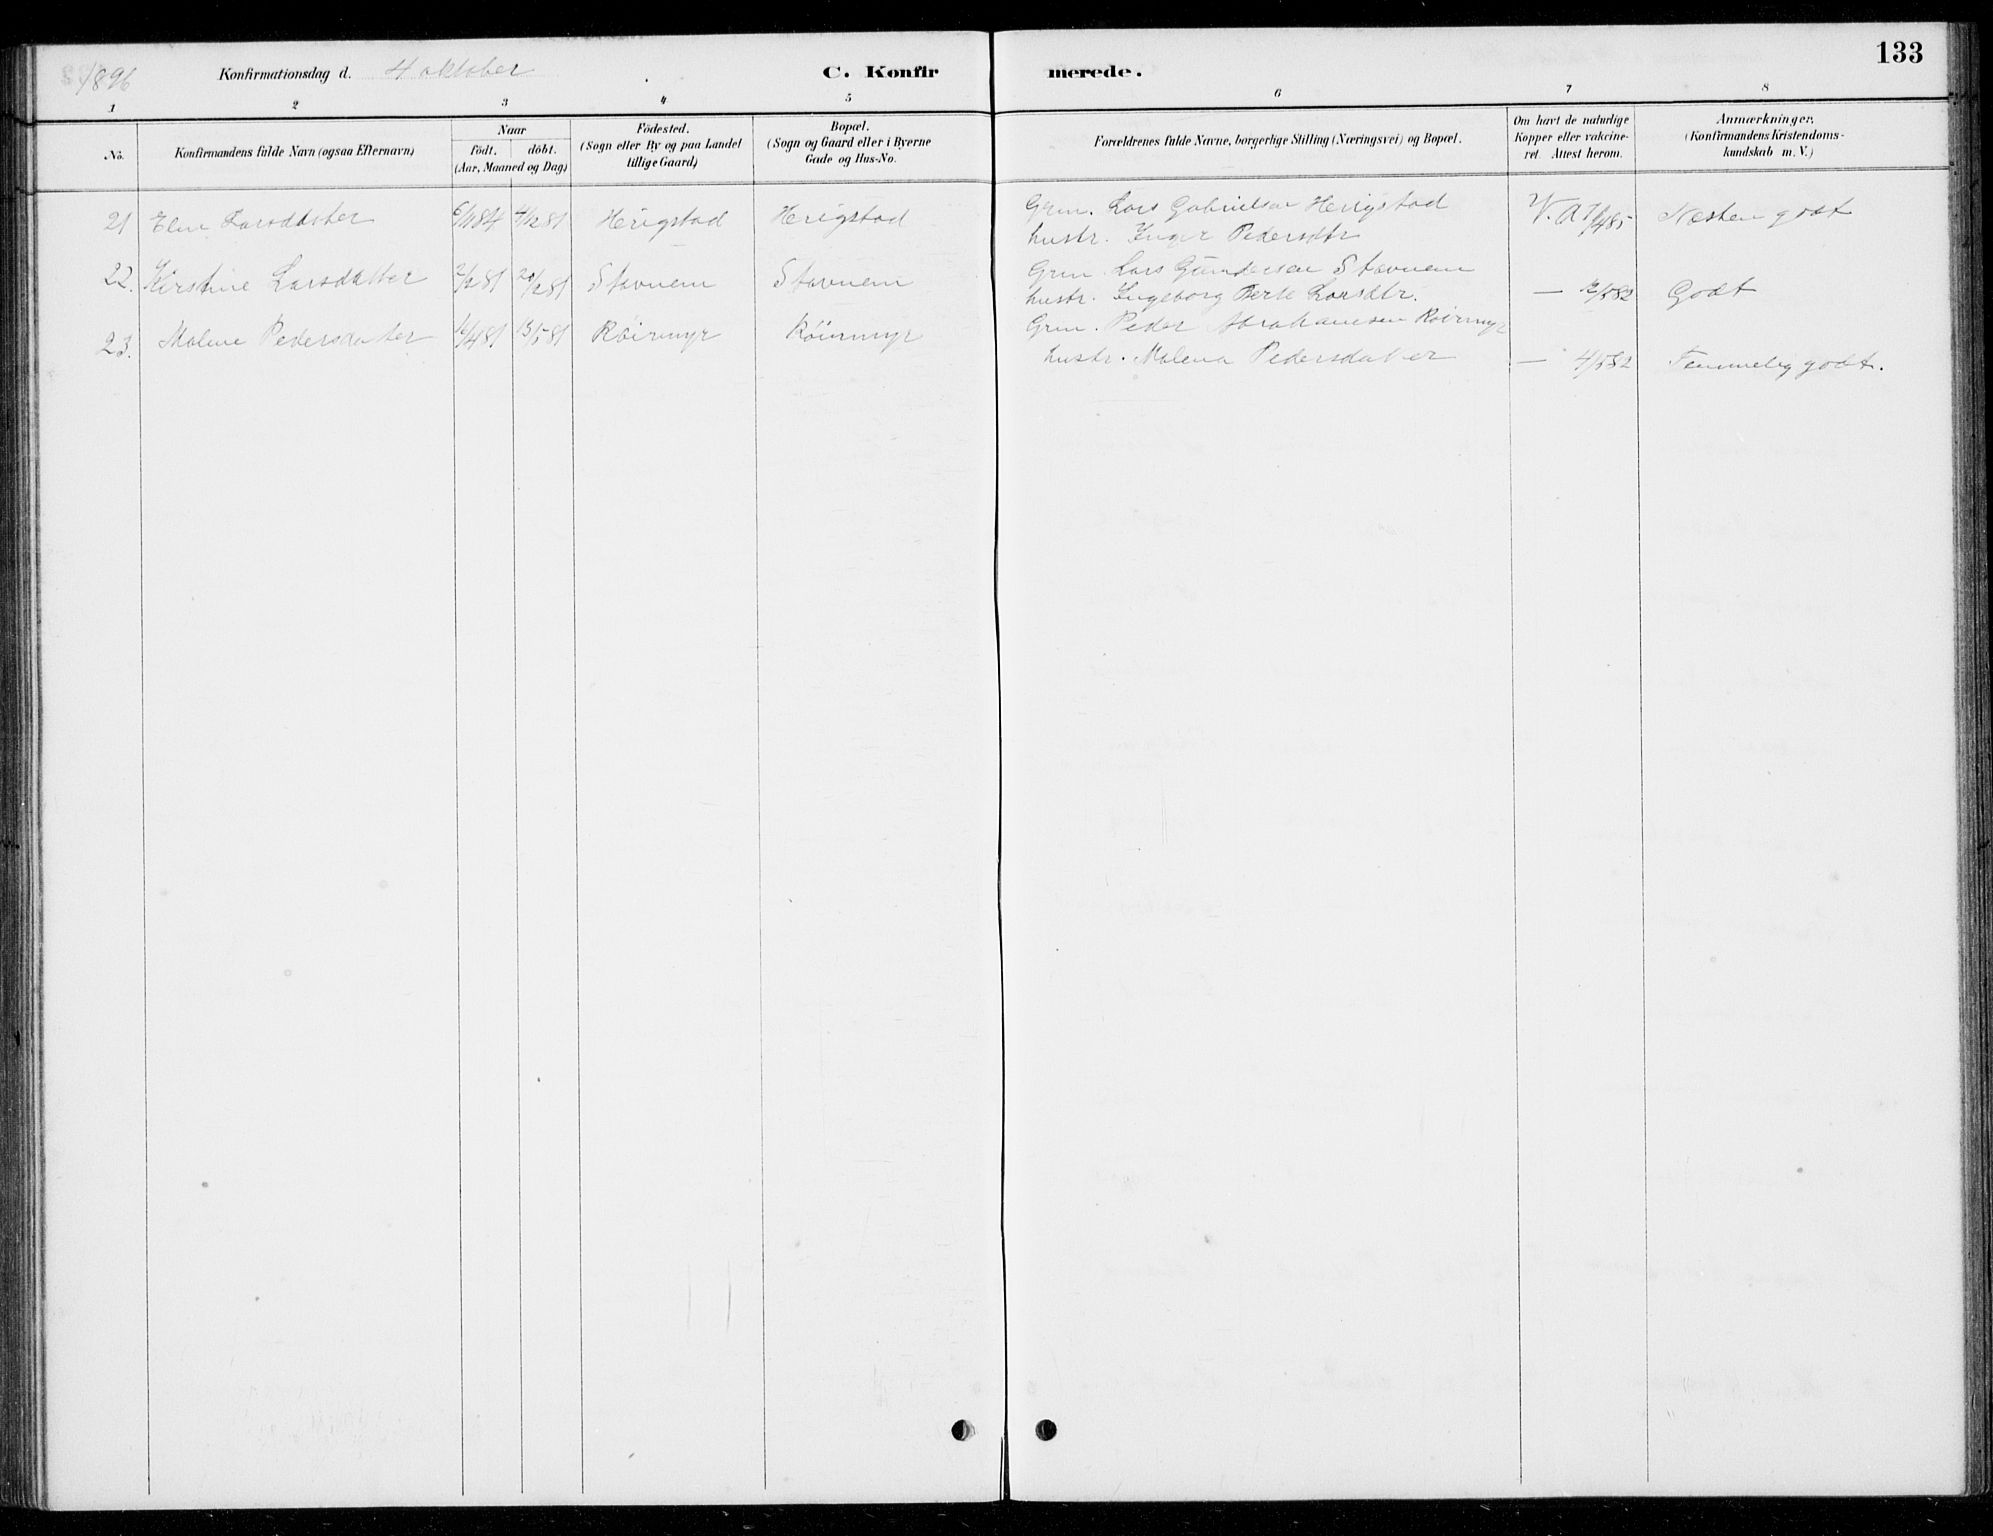 1896 Konfirmationsdag d. 4 oktober C. Konfir merede. 133
1 2 3 4 5 6 7 8
No. Konfirmandens fulde Navn (ogsaa Efternavn) Naar Födt. döbt. (Aar, Maaned og Dag) Födested. (Sogn eller By og paa Landet tillige Gaard) Bopæl. (Sogn og Gaard eller i Byerne Gade og Hus-No. Forældrenes fulde Navne, borgerlige Stilling (Næringsvei) og Bopæl. Om havt de naturlige Kopper eller vakcineret. Attest herom. Anmærkninger. (Konfirmandens Kristendomskundskab m. V.)
21 Larsdatter Herigstad Herigstad Grm. Lars Gabrielsen Herigstad V. A Næsten godt
hustr. Inger Pedersdtr
22. Kirstine Larsdatter 2/2 81 20/2 81 Stavnem Stavnem Grm. Lars Gundersen Stavnem
hustr. Ingeborg Berte Larsdtr. — 12/5 82 Godt
23. Malene Pedersdatter 16/4 81 15/5 81 Röirmyr Röirmyr Grm. Peder Abrahamsen Röirmyr
hustr. Malena Pedersdatter — 4/5 82 Temmelig godt.